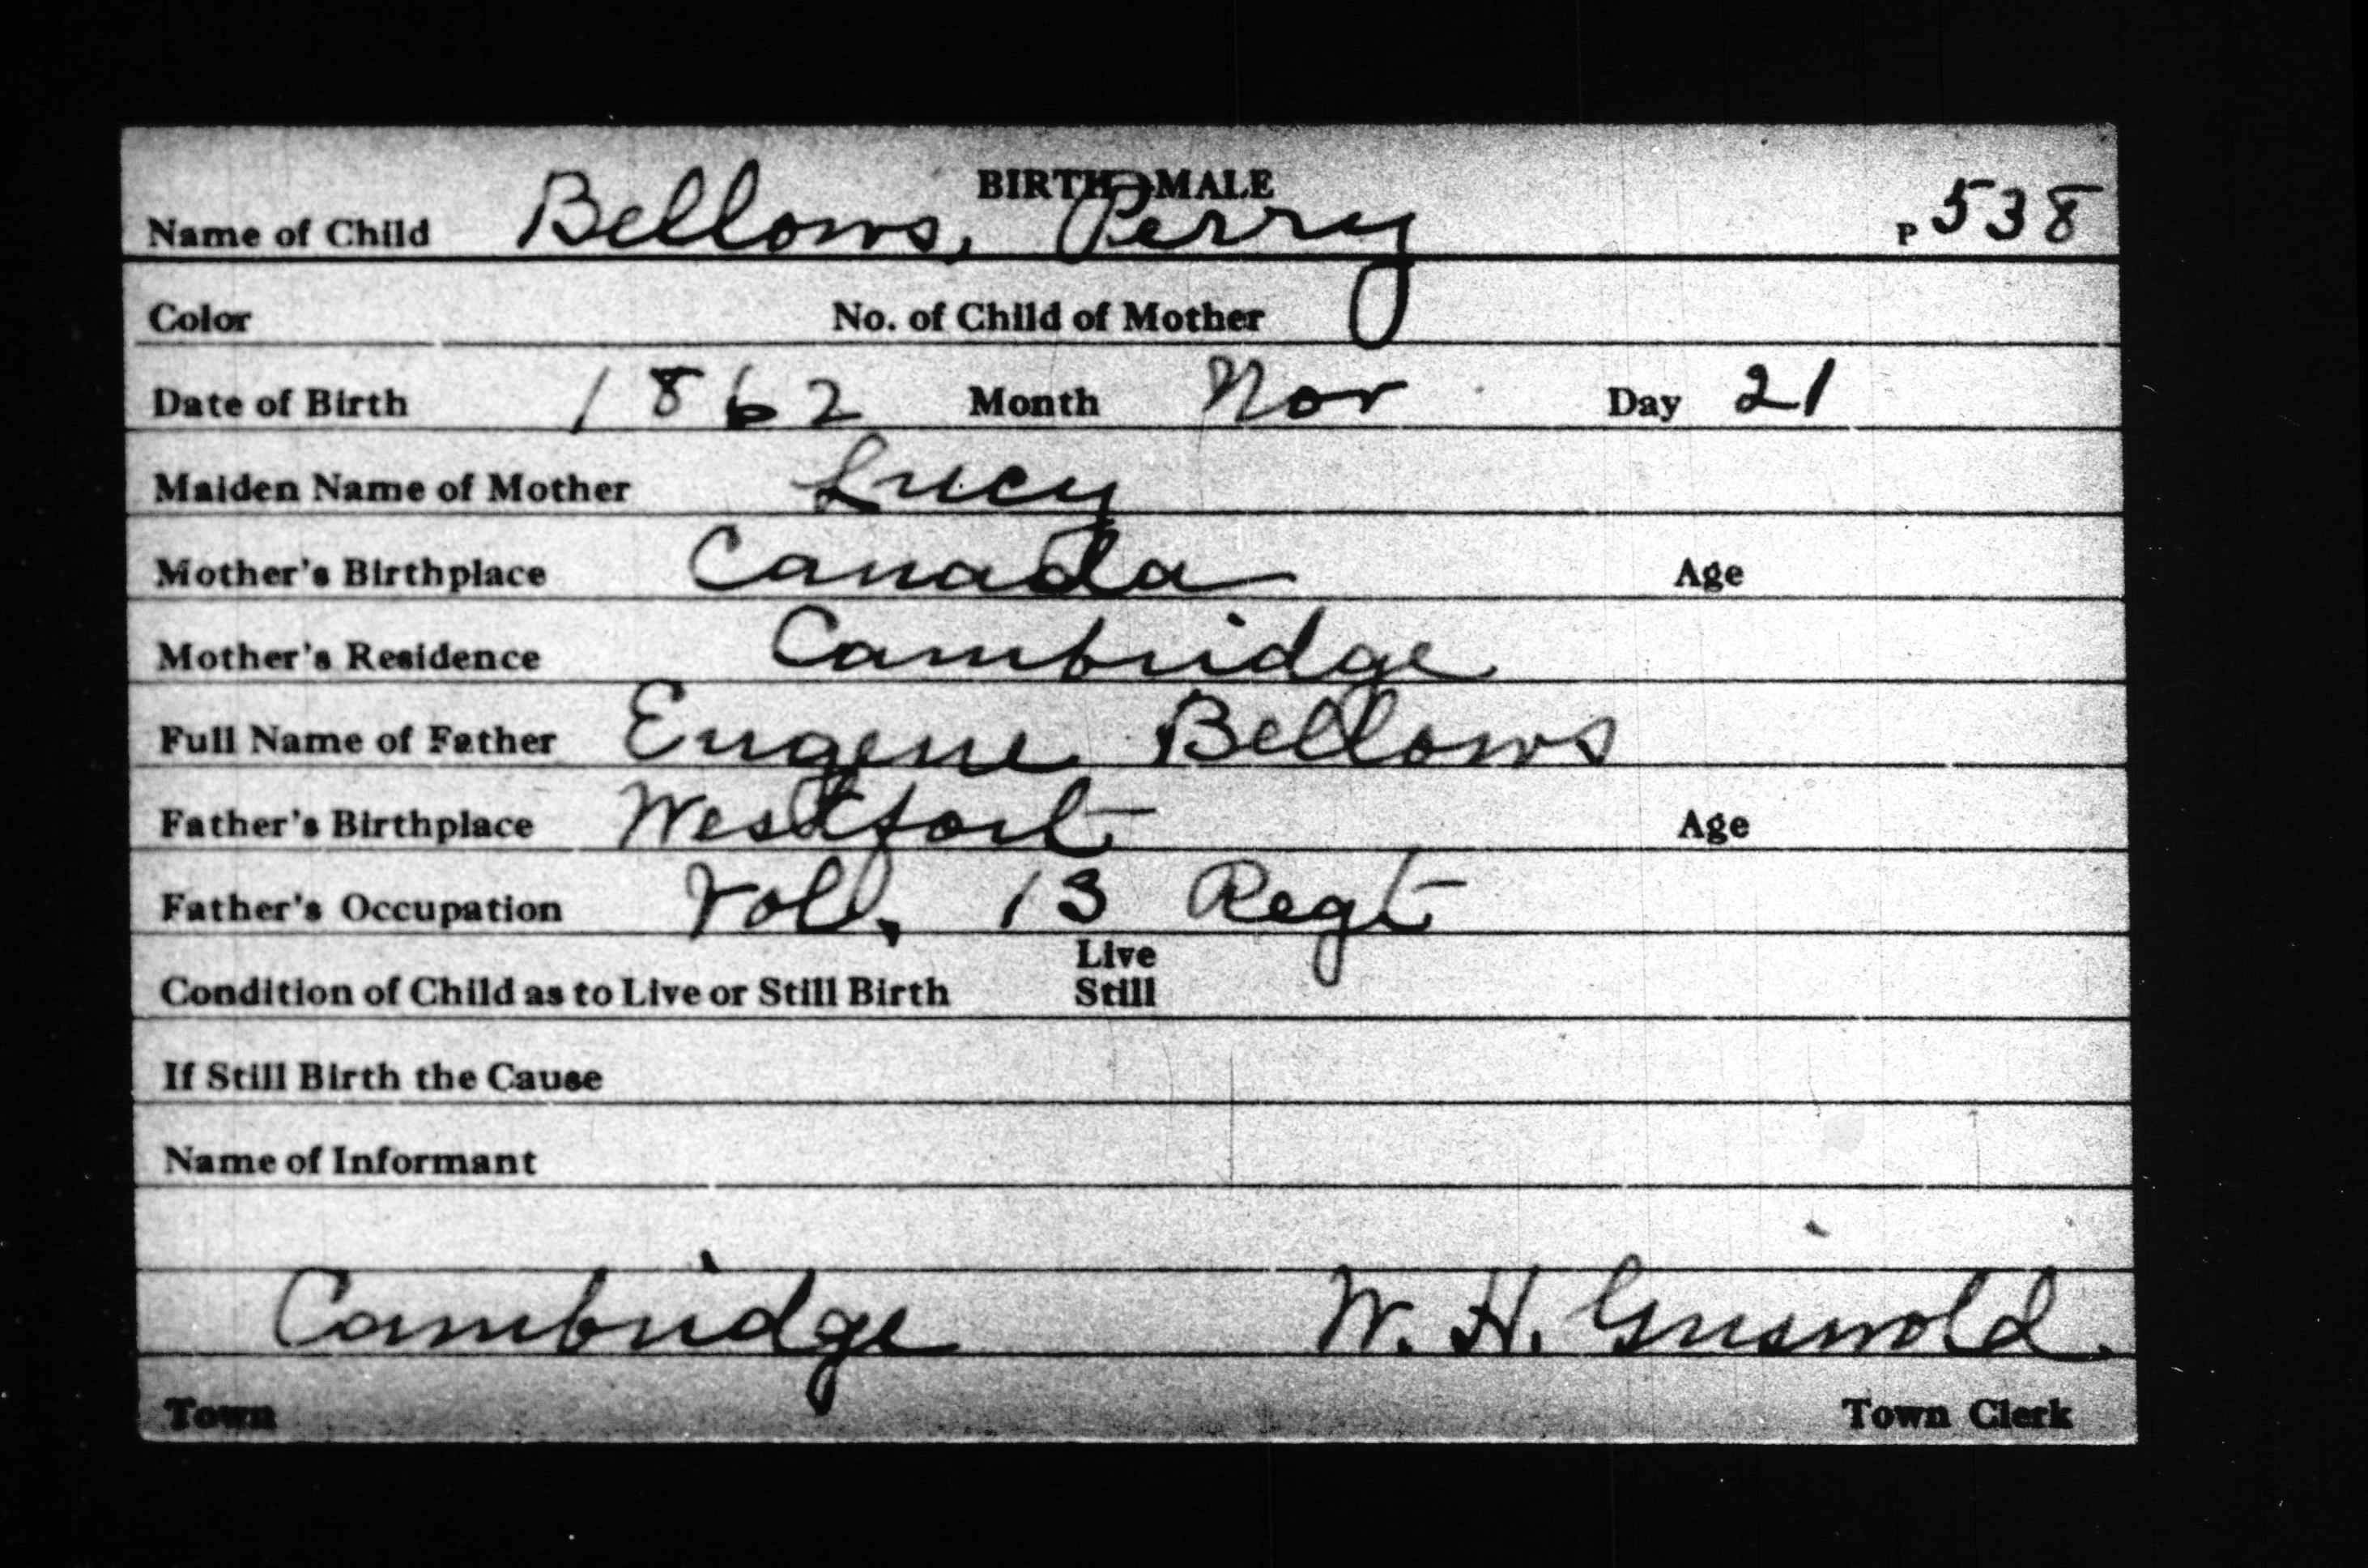 BIRTH—MALE
Name of Child Bellows, Perry P 538
Color No. of Child of Mother
Date of Birth 1862 Month Nov Day 21
Maiden Name of Mother Lucy
Mother's Birthplace Canada Age
Mother's Residence Cambridge
Full Name of Father Eugene Bellows
Father's Birthplace Westfort Age
Father's Occupation Voll. 13 Regt
Live
Condition of Child as to Live or Still Birth Still
If Still Birth the Cause
Name of Informant
Cambridge W. H. Griswold.
Town Town Clerk